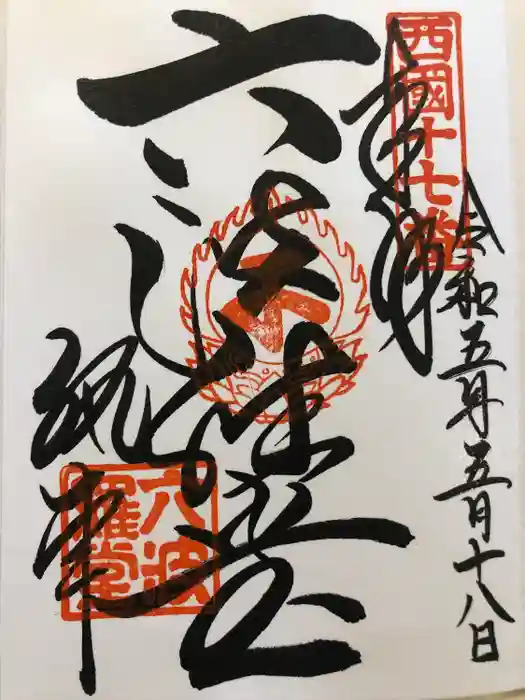 西國十七番
奉拝
令和五年五月十八日
六波羅堂
六波
羅堂